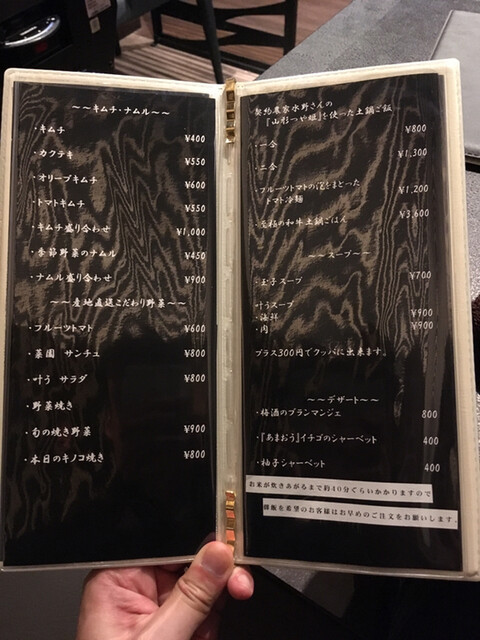 ～～キムチ・ナムル～～
・キムチ ¥400
・カクテキ ¥550
・オリーブキムチ ¥600
・トマトキムチ ¥550
・キムチ盛り合わせ ¥1,000
・季節野菜のナムル ¥450
・ナムル盛り合わせ ¥900
～～産地直送こだわり野菜～～
・フルーツトマト ¥600
・菜園 サンチュ ¥800
・叶う サラダ ¥800
・野菜焼き
・旬の焼き野菜 ¥900
・本日のキノコ焼き ¥800
契約農家水野さんの
『山形つや姫』を使った土鍋ご飯
・一合 ¥800
・二合 ¥1,300
・フルーツトマトの泡をまとった
トマト冷麺 ¥1,200
・至福の和牛土鍋ごはん ¥3,600
～～スープ～～
・玉子スープ ¥700
叶うスープ
・海鮮 ¥900
・肉 ¥900
プラス300円でクッパに出来ます。
～～デザート～～
・梅酒のブランマンジェ 800
・『あまおう』イチゴのシャーベット 400
・柚子シャーベット 400
お米が炊きあがるまで約40分ぐらいかかりますので
御飯を希望のお客様はお早めのご注文をお願いします。